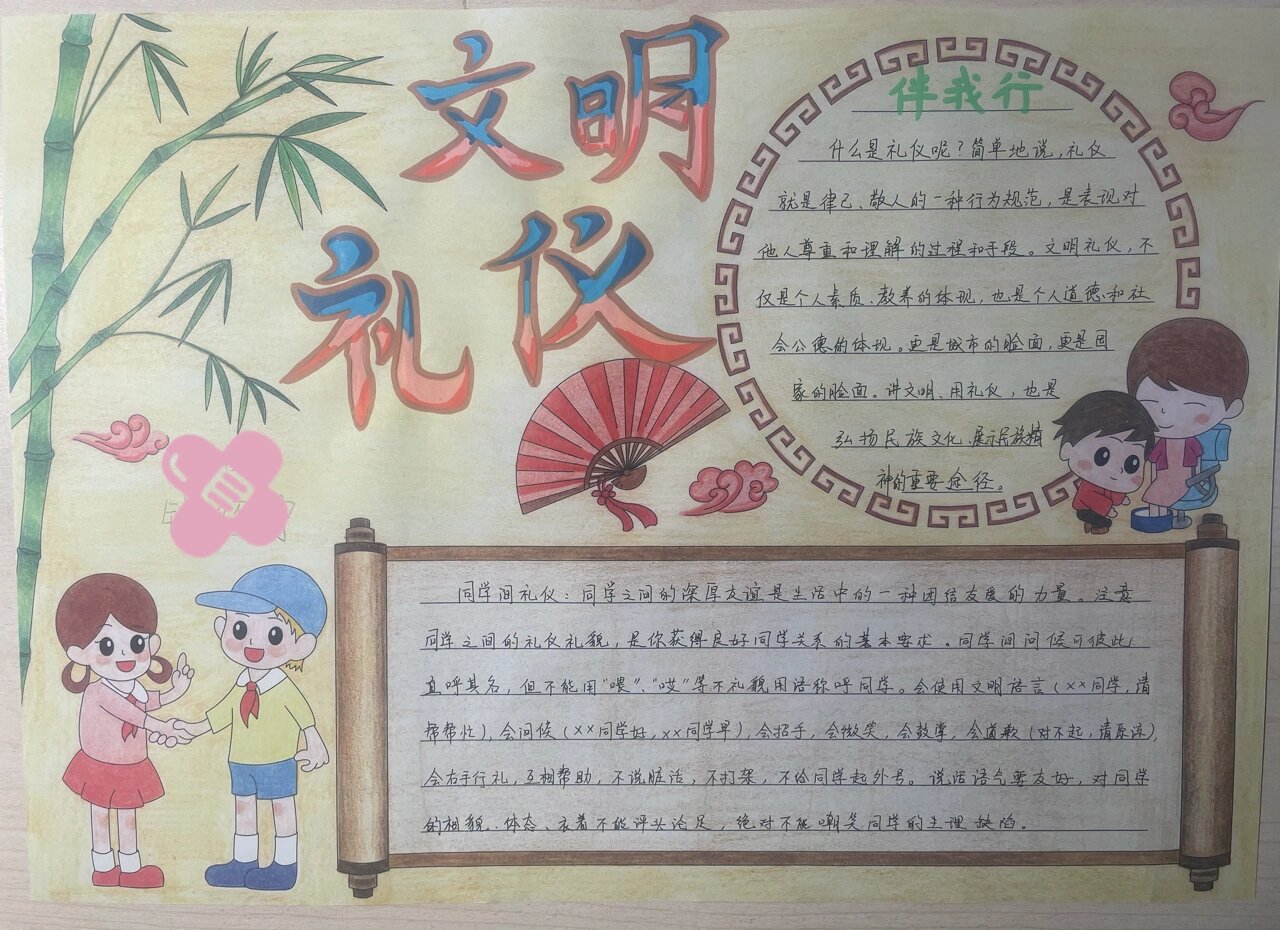 文明
礼仪
伴我行
什么是礼仪呢？简单地说，礼仪
就是律己、敬人的一种行为规范，是表现对
他人尊重和理解的过程和手段。文明礼仪，不
仅是个人素质、教养的体现，也是个人道德和社
会公德的体现。更是城市的脸面，更是国
家的脸面。讲文明、用礼仪，也是
弘扬民族文化、展示民族精
神的重要途径。
同学间礼仪：同学之间的深厚友谊是生活中的一种团结友爱的力量。注意
同学之间的礼仪礼貌，是你获得良好同学关系的基本要求。同学间问候可彼此
直呼其名，但不能用“喂”、“哎”等不礼貌用语称呼同学。会使用文明语言（××同学，请
帮帮忙），会问候（××同学好，××同学早），会招手，会微笑，会鼓掌，会道歉（对不起，请原谅），
会右手行礼，互相帮助，不说脏话，不打架，不给同学起外号。说话语气要友好，对同学
的相貌、体态、衣着不能评头论足，绝对不能嘲笑同学的生理缺陷。